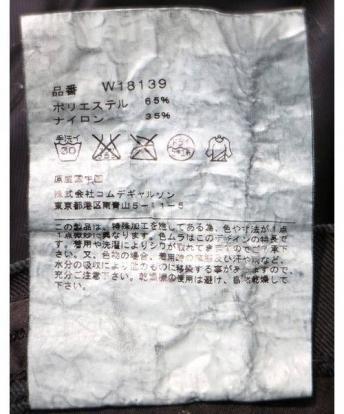 品番 W18139
ポリエステル 65%
ナイロン 35%
手洗イ
30
原産国中国
株式会社コムデギャルソン
東京都港区南青山5-11-5
この製品は、特殊加工を施してある為、色や寸法が1点
1点微妙に異なります。色ムラはこのデザインの特長で
す。着用や洗濯によりシワが取れてきますのでご了承下
さい。又、色物の場合、着用時の摩擦及び汗や雨など、
水分の吸収により他のものに移染する事がありますので
充分ご注意下さい。乾燥機の使用は避け、自然乾燥して
下さい。